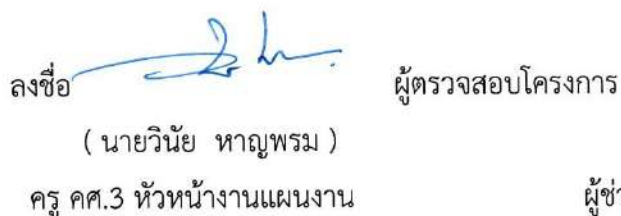 ลงชื่อ ผู้ตรวจสอบโครงการ
( นายวินัย หาญพรม )
ครู คศ.3 หัวหน้างานแผนงาน